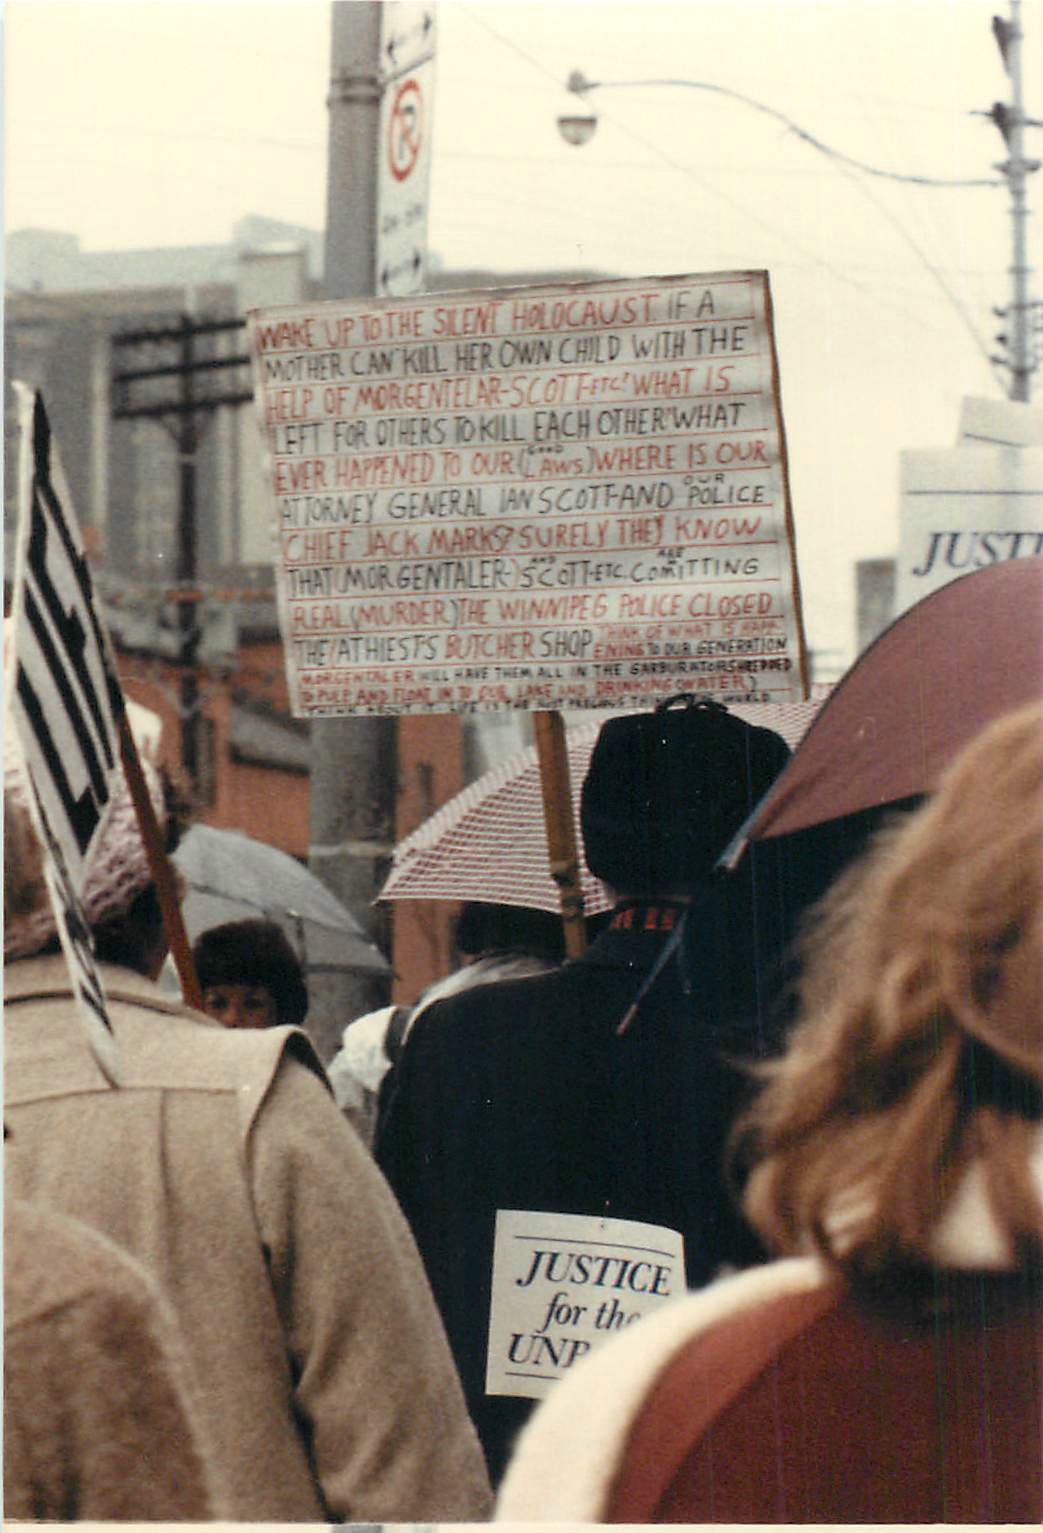 WAKE UP TO THE SILENT HOLOCAUST. IF A
MOTHER CAN KILL HER OWN CHILD WITH THE
HELP OF MORGENTELAR-SCOTT-ETC! WHAT IS
LEFT FOR OTHERS TO KILL EACH OTHER! WHAT
EVER HAPPENED TO OUR (GOOD LAWS) WHERE IS OUR
ATTORNEY GENERAL IAN SCOTT-AND OUR POLICE
CHIEF JACK MARKS? SURELY THEY KNOW
THAT (MORGENTALER-) AND SCOTT-ETC. ARE COMITTING
REAL (MURDER) THE WINNIPEG POLICE CLOSED
THE (ATHIESTS BUTCHER SHOP THINK OF WHAT IS HAPP
ENING TO OUR GENERATION
MORGENTALER WILL HAVE THEM ALL IN THE GARBURATOR SHREDDED
TO PULP AND FLOAT IN TO OUR LAKE AND DRINKING WATER)
THINK ABOUT IT. LIFE IS THE MOST PRECIOUS WORLD
JUSTI
JUSTICE
for the
UNB